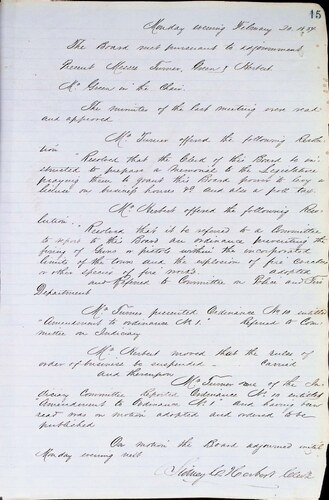 15
Monday evening February 20, 18
The Board met pursuant to adjournment
Present Messrs Turner, Green & Herbert
Mr Green in the Chair
The minutes of the last meeting were read
and approved
Mr Turner offered the following Resolu-
tion
"Resolved that the Clerk of this Board be in-
structed to prepare a memorial to the Legislature
praying them to grant this Board power to levy a
license on business houses &c and also a poll tax
Mr Herbert offered the following Reso-
lution
"Resolved that it be referred to a Committee
to report to this Board an ordinance preventing the
firing of Guns & pistols within the incorporated
limits of the town and the explosion of fire Crackers
or other species of fire works adopted
and Referred to Committee on Police and Fire
Department
Mr Turner presented Ordinance No 10 entitled
"Amendment to ordinance No 1" Referred to Com-
mittee on Judiciary
Mr Herbert moved that the rules of
order of business be suspended carried
and thereupon
Mr Turner one of the Ju-
diciary Committee reported Ordinance No 10 entitled
Amendment to Ordinance No 1 and having been
read was on motion adopted and ordered to be
published
On motion the Board adjourned until
Monday evening next
Sidney Herbert Clerk